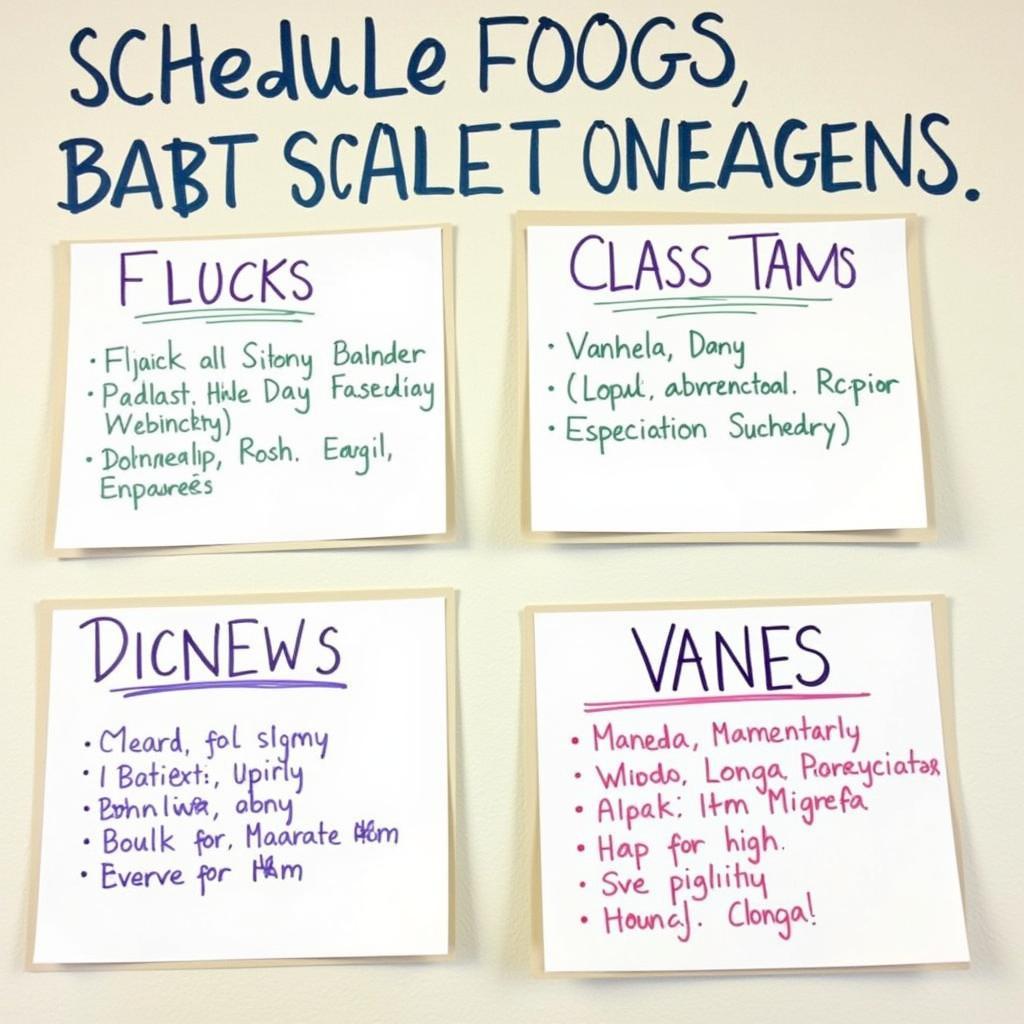 SCHedULe FOOGS,
BABT SCALET ONEAGENS.
FLUCKS
• Fljaick all Sitony Balnder
• Padlast. Hile Day Fasediay
Webinckty)
• Dotnnealip, Rosh. Eargil,
Enpaureēs
CLASS TAMS
• Vanhela, Dany
• (Lopul, abvrenctoal. Rc.pior
• Especiation Suchedry)
DICNEWS
• Cleard, fol slgmy
• I Batiext:, Upirly
• abny
• Boulk for, Maarate
• Everve for
VANES
• Maneda, Mamentarly
• Wiodo, Longa Pioreyciatas
• Alpak: Itm Migrefa
• Hap for high.
• Sve pigliihy
• Hounaj. Clonga!